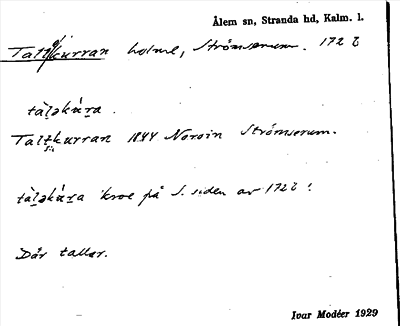 Ålem sn, Stranda hd, Kalm. l.
Tallkurran holme, Strömserum. 172 b
tàḷəku̇́ṟa.
Tallkurran 1844 Noroin Strömserum.
tàḷəku̇́ṟa kroe på S. siden av 172 b!
Där tallar.
Ivar Modéer 1929